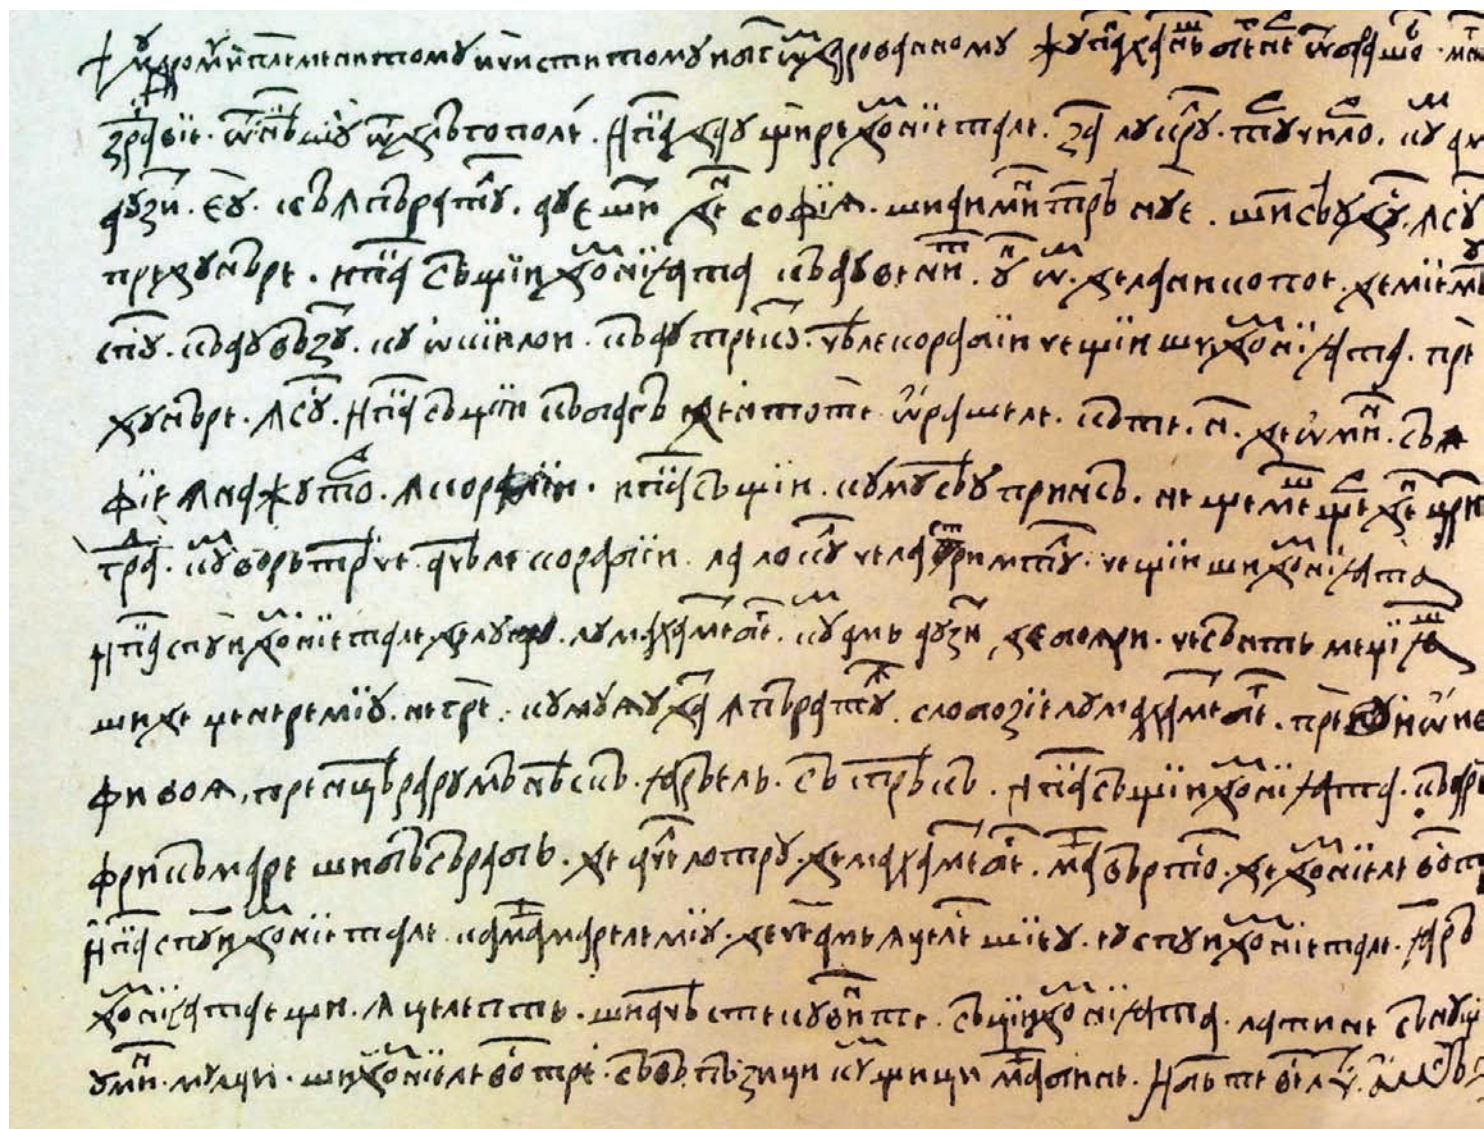 Мꙋдромꙋ и племенитомꙋ и чиститомꙋ и бг҃ом дарованомꙋ жꙋпан Ханъш Бегнер ѡт Брашов мн
здравїе ѡт Нѣкшꙋ ѡт Длъгополе. И пак дaꙋ щире домнїетале. за лꙋкрꙋл тꙋрчилор. кꙋм ам
аꙋзит еꙋ. къ ꙟпъратꙋл аꙋ ешит ден Софїѧ. ши аиминтрѣ нꙋе. ши съꙋ дꙋс ꙟ сꙋс
пре дꙋнъре. и пак съ щїи домнїꙗта къ аꙋ венит ꙋн ѡм де ла Никопое де мїе мѣꙋ
спꙋс къ аꙋ възꙋт кꙋ ѡкїи лои къ аꙋ трекꙋт чѣле корабїи че щїи ши домнїꙗта пре
дꙋнъре ꙟ сꙋс. и пак съ щїи къ багъ ден тоте ѡрашеле къте н҃ де ѡмин съ
фїе ꙟн ажꙋтор ꙟ корабїи. и пак съ щїи кꙋмꙋ съꙋ принсъ неще мещер ден цари
град кꙋм ворь трѣче ачѣле корабїи ла локꙋл чела стримтꙋл че щїи ши домнїꙗта
и пак спꙋи домнїетале де лꙋкрꙋл лꙋ махамет бег кꙋм амь аꙋзит де боѧри че сънть меџїꙗш
ши де џенеремїꙋ негре кꙋмꙋ ꙗꙋ дат ꙟпъратꙋл слобозїе лꙋ махамет бег пре
фи воѧ, прен цѣра рꙋмънѣскъ ꙗръ ель съ трѣкъ. и пак съ щїи домнїꙗта къ аре
фрикъ маре ши бъсърабь де ачел лотрꙋ де махамет бег маи въртос де домнїеле вост
и пак спꙋи домнїетале ка маи мареле мїꙋ де че амь ꙟцелес шїеꙋ. еꙋ спꙋи домнїетале ꙗръ
домнїꙗта ещи ꙟцелепть ши ачѣсте кꙋвинте съ ции домнїꙗта ла тине съ нꙋ щ
ꙋмин мꙋлци ши домнїеле востре съ въ пъзици кꙋм щици маи бине. и бь те веселит аминь